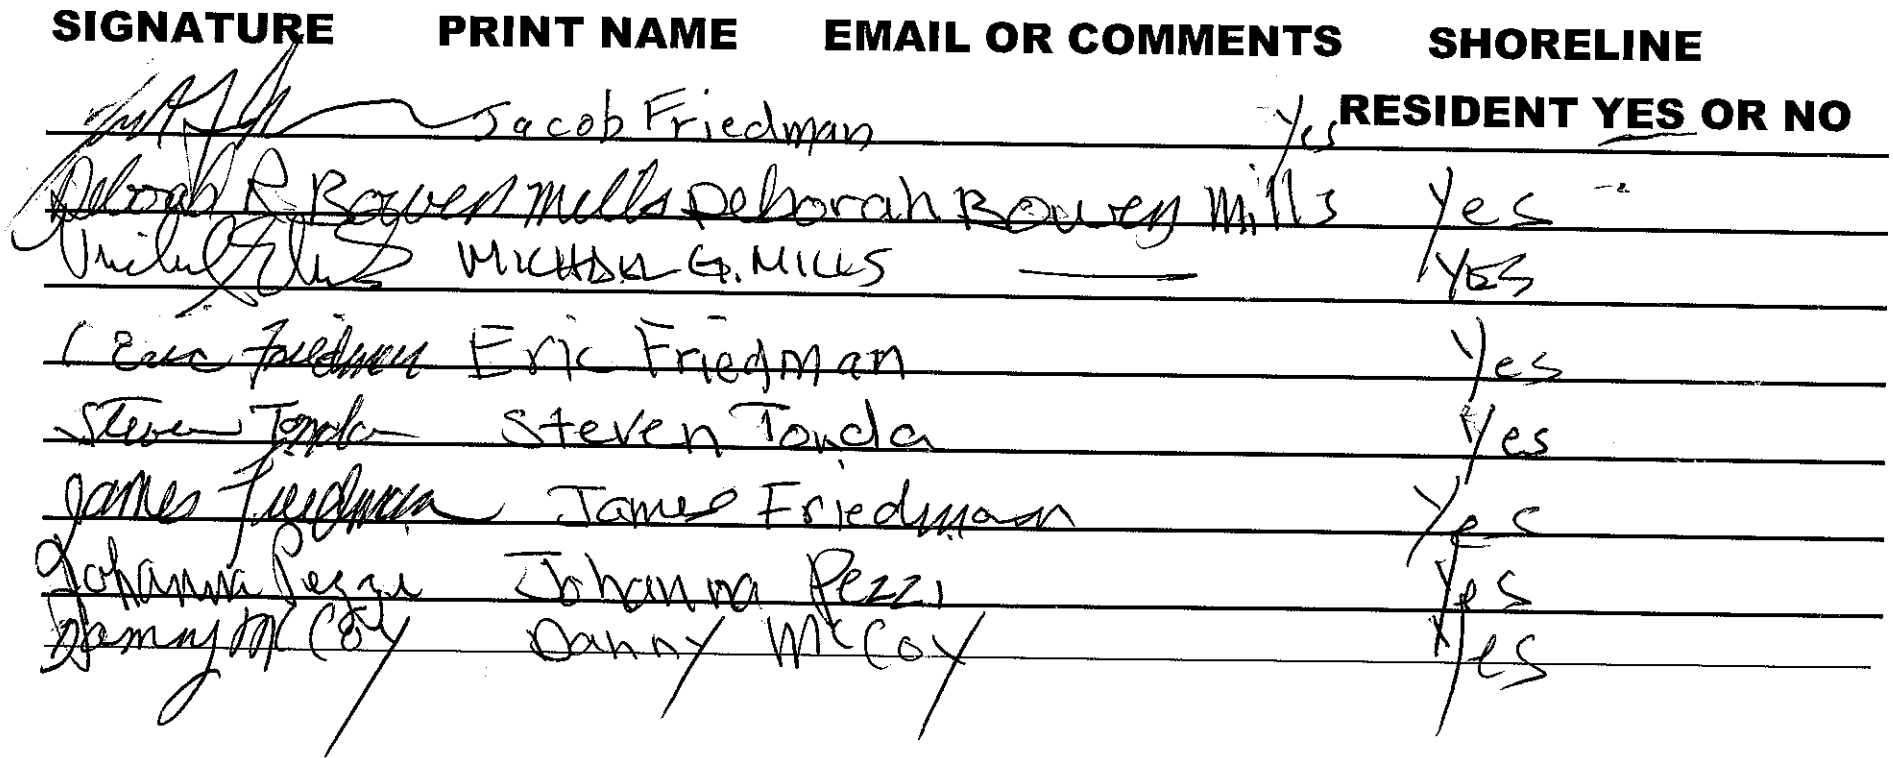 SIGNATURE PRINT NAME EMAIL OR COMMENTS SHORELINE
RESIDENT YES OR NO
Jacob Friedman Yes
Deborah R Bowen Mills Deborah Bowen Mills Yes
MICHAEL G. MILLS YES
Eric Friedman Eric Friedman Yes
Steven Tonda Steven Tonda Yes
James Friedman James Friedman Yes
Johanna Pezzi Johanna Pezzi Yes
Danny McCoy Danny McCoy Yes